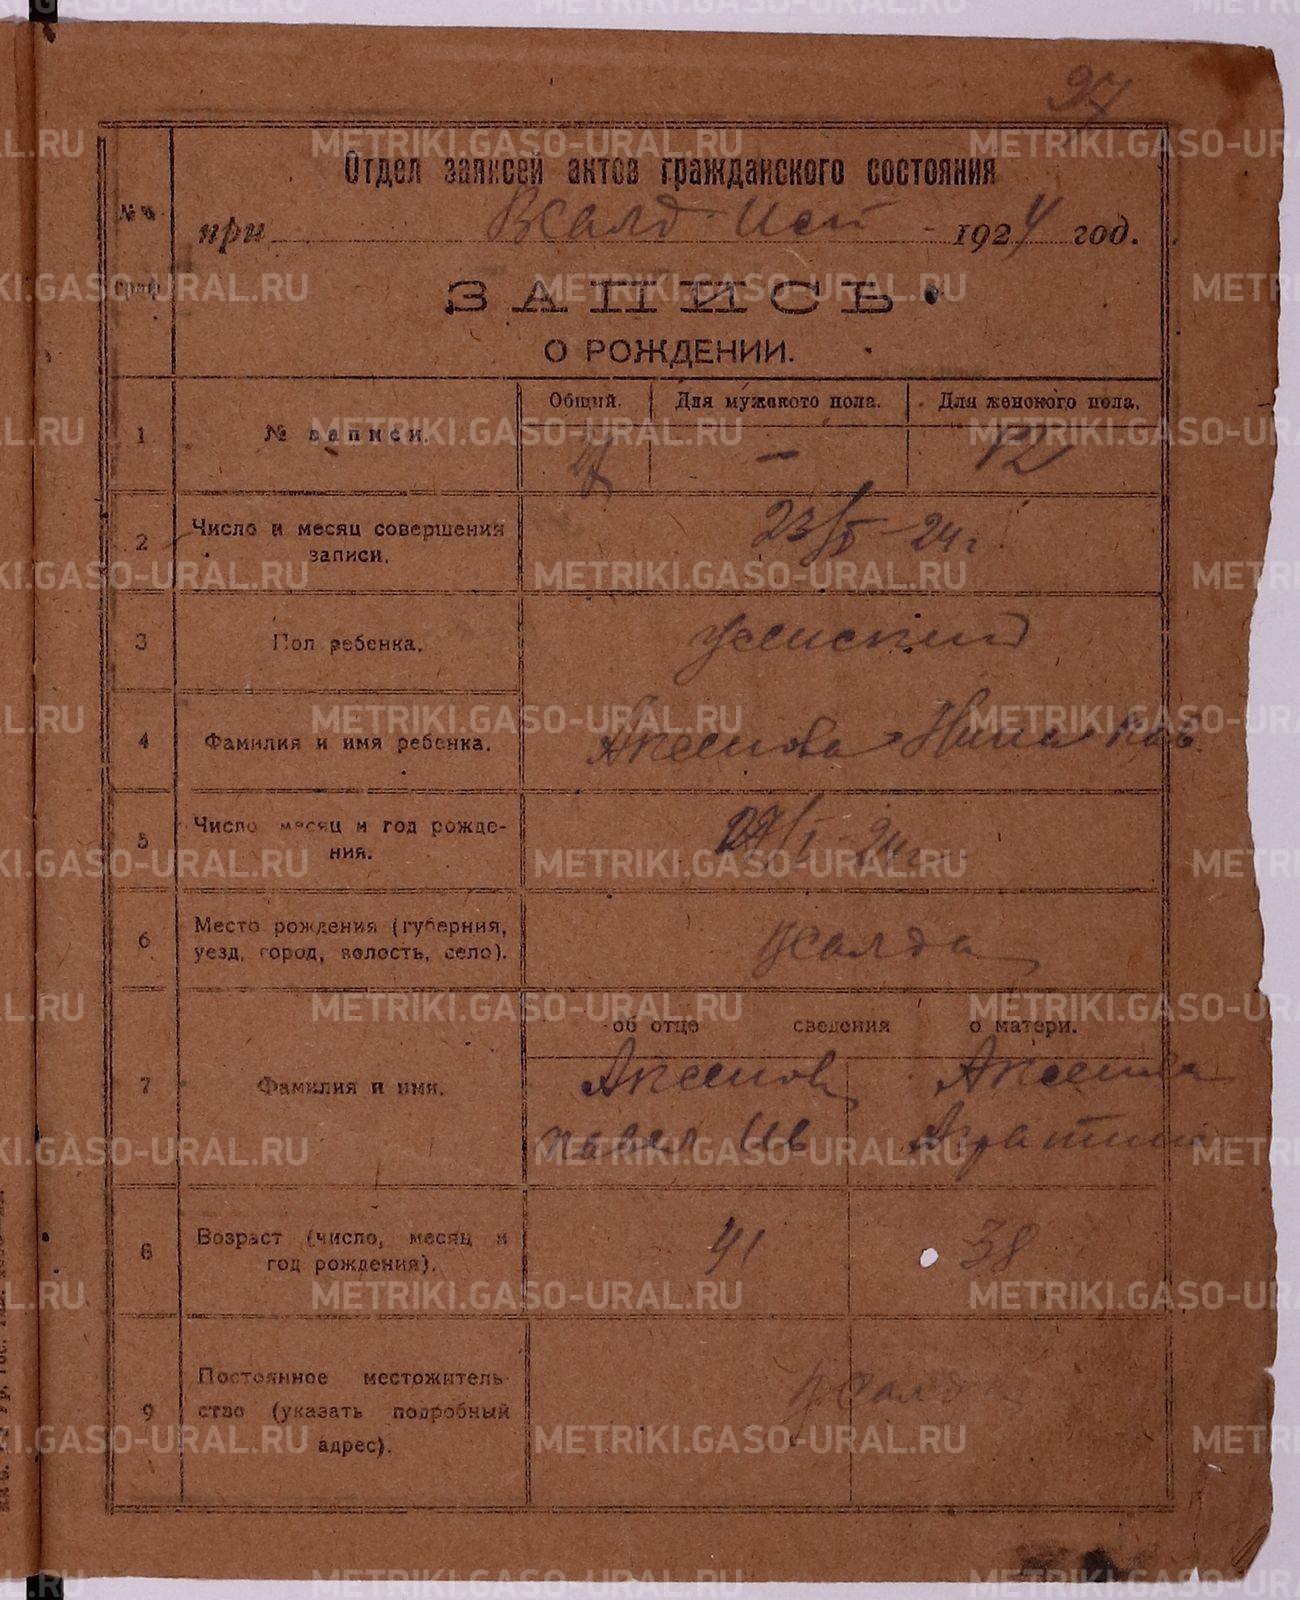 97
Отдел записей актов гражданского состояния
№ №
граф
при В Салд. 1924 год.
ЗАПИСЬ
О РОЖДЕНИИ.
Общий. Для мужского пола. Для женского пола.
1 № записи. — 12
2 Число и месяц совершения
записи.
23/I - 24 г
3 Пол ребенка. женский
4 Фамилия и имя ребенка. Аксенова Нина Пав.
5 Число, месяц и год рожде-
ния.
/I - 24 г.
6 Место рождения (губерния,
уезд, город, волость, село).
Салда
об отце сведения о матери.
7 Фамилия и имя.
Аксенов Аксенова
Павел Ив
8 Возраст (число, месяц и
год рождения).
41 38
9 Постоянное местожитель-
ство (указать подробный
адрес).
Салда
METRIKI.GASO-URAL.RU